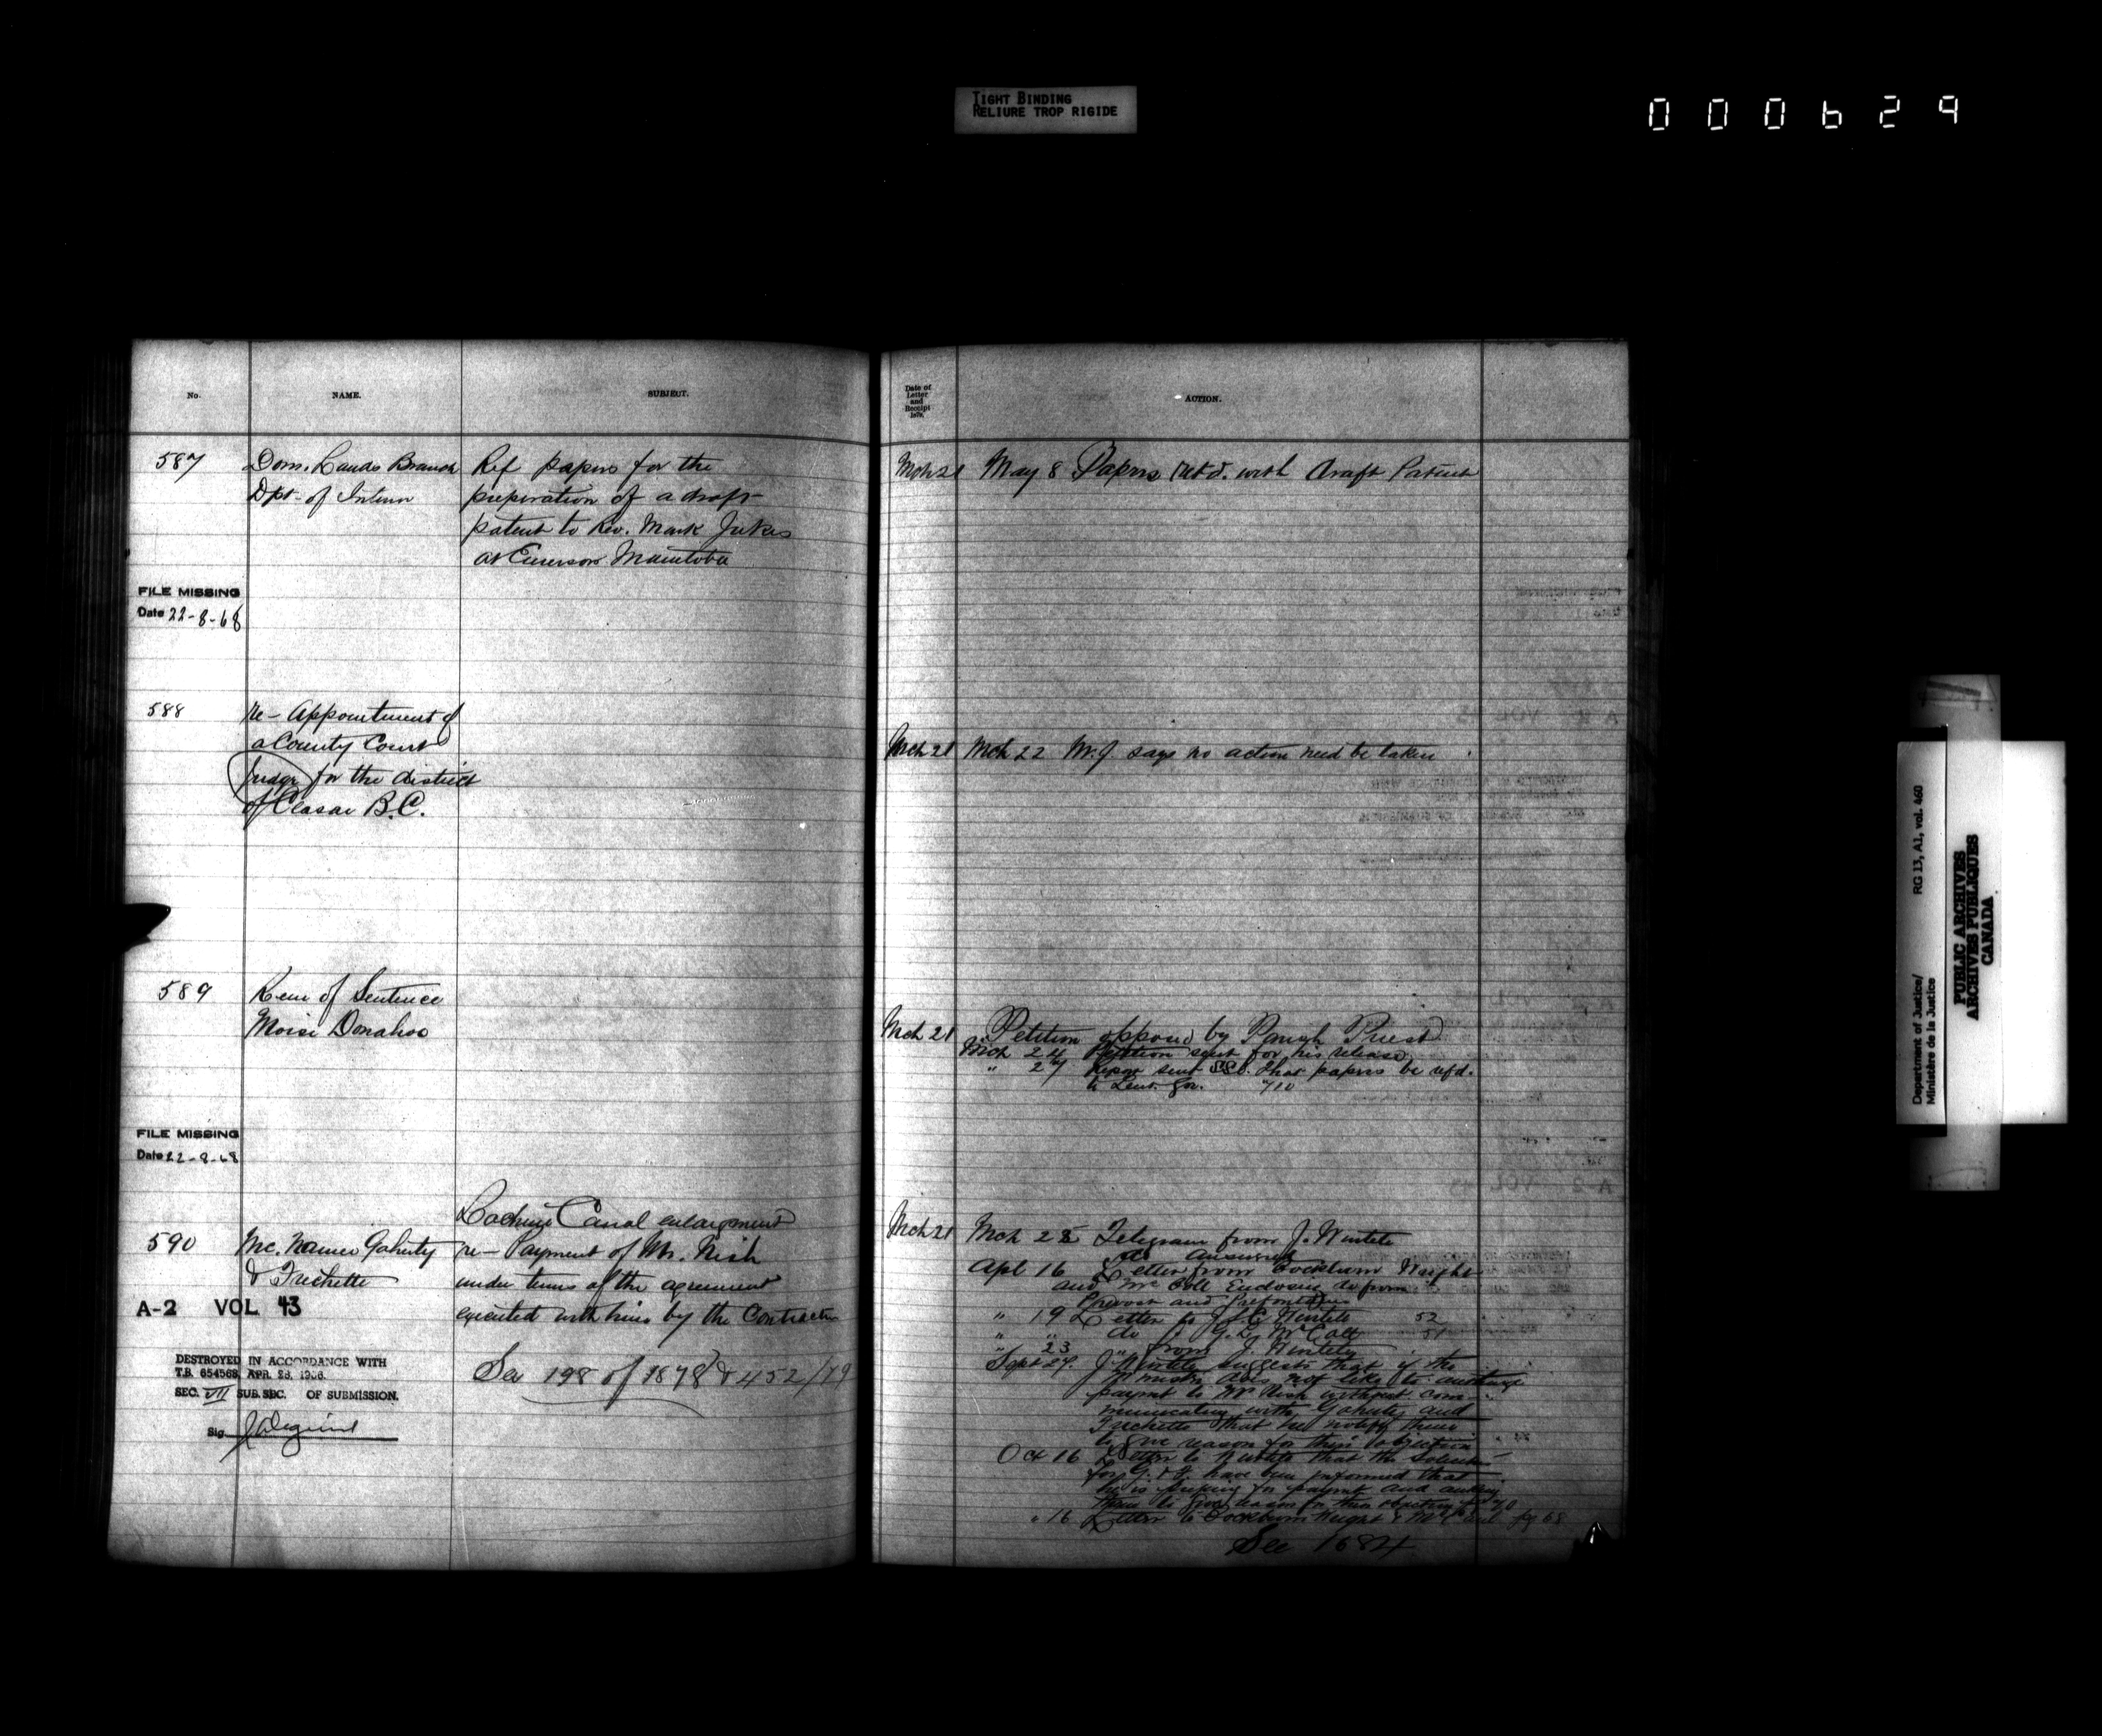 TIGHT BINDING
RELIURE TROP RIGIDE
000629
No.
NAME.
SUBJECT.
587
Dom. Lands Branch
Dpt of Interior
Ref papers for the
preperation of a draft
patent to Rev. Mark Jukes
at Emerson Manitoba
FILE MISSING
Date 22-8-68
588
re- Appointment of
a County Court
Judge for the district
of Classar B.C.
589
Rem of Sentence
Moise Donahoe
FILE MISSING
Date 22-8-68
590
Mc. Namee Gaherty
& Frechette
Lachine Canal enlargement
re- Payment of Mr. Nish
under terms of the agreement
executed with him by the Contractors
A-2 VOL 43
DESTROYED IN ACCORDANCE WITH
T.B. 654568, APR. 28, 1966.
SEC. VII SUB. SEC. OF SUBMISSION.
Sig.
See 198 of 1878 & 452/79
Date of
Letter
and
Receipt
187
ACTION.
Mch 21 May 8 Papers retd. with draft Patent
Mch 21 Mch 22 M.J. says no action need be taken
Mch 21 Petition opposed by Parish Priest
Mch 24 Petition sent for his release
" 27 Report sent SS. that papers be refd.
to Lieut. Gov. 710
Mch 21 Mch 25 Telegram from J.
do answered
Apl 16 Letter from Cockburn Wright
and Enclosing do from
Prevost and Prefontaine
" 19 Letter to 52
" " do 51
" 23 " from J.
Sept 27. J. suggests that if the
Minister does not like to authorize
paymt to McNish without com-
municating with Gaherty and
Frechette that he notify them
to give reason for their objection
Oct 16 Letter to that the Solicitors
for G. & F. have been informed that
he is pressing for paymt and asking
them to give reason for their objection 70
" 16 Letter to Cockburn Wright & pg 68
See 1684
Department of Justice/
Ministère de la Justice
RG 13, A1, vol. 460
PUBLIC ARCHIVES
ARCHIVES PUBLIQUES
CANADA